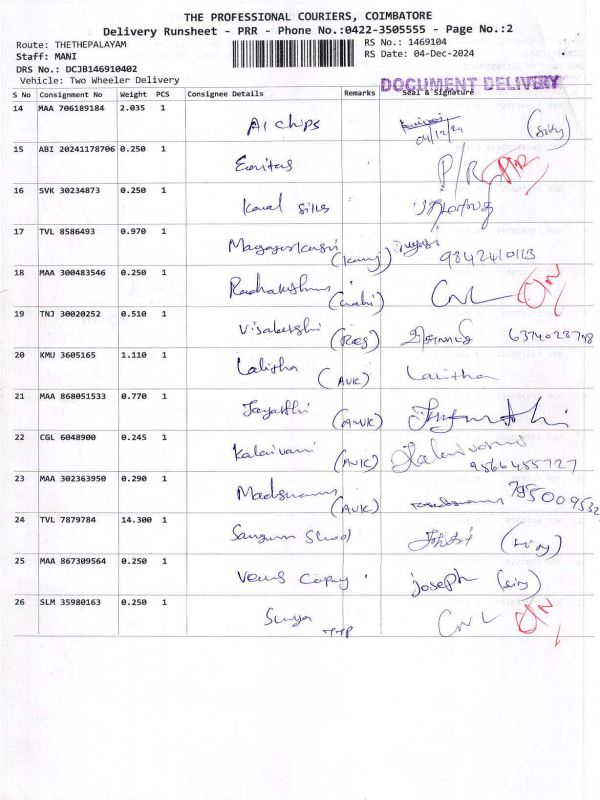 THE PROFESSIONAL COURIERS, COIMBATORE
Delivery Runsheet - PRR - Phone No.:0422-3505555 - Page No.:2
Route: THETHEPALAYAM
RS No.: 1469104
Staff: MANI
RS Date: 04-Dec-2024
DRS No.: DCJB146910402
Vehicle: Two Wheeler Delivery
DOCUMENT DELIVERY
S No Consignment No Weight PCS Consignee Details Remarks Seal & Signature
14 MAA 706189184 2.035 1 A1 Chips
04/12/24
15 ABI 20241178706 0.250 1 P/R P/R
16 SVK 30234873 0.250 1
17 TVL 8586493 0.970 1 9842410113
18 MAA 300483546 0.250 1 CNL
19 TNJ 30020252 0.510 1
20 KMU 3605165 1.110 1 Lalitha (AVK) Lalitha
21 MAA 868051533 0.770 1 Jayanthi (AVK)
22 CGL 6048900 0.245 1 Kalaivani (AVK) Kalaivani
9566455727
23 MAA 302363950 0.290 1 (AVK)
24 TVL 7879784 14.300 1
25 MAA 867309564 0.250 1 Joseph
26 SLM 35980163 0.250 1 Surya TTP CNL